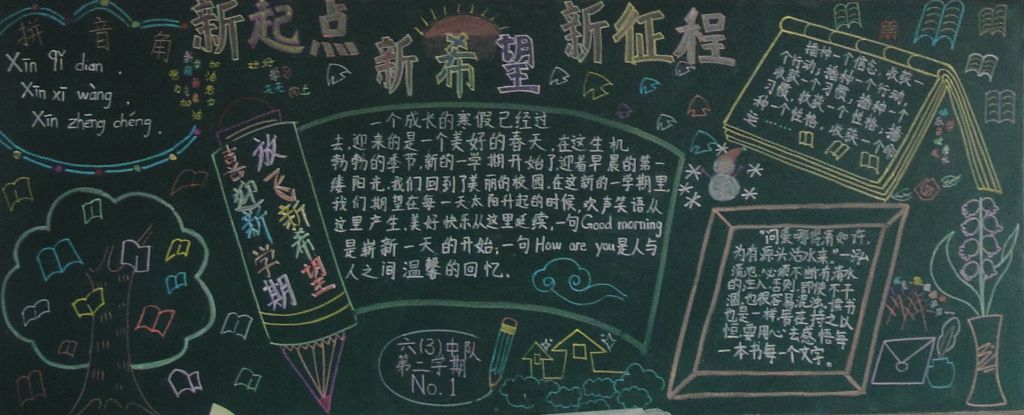 新起点
新希望
新征程
拼音角
Xīn qǐ diǎn .
Xīn xī wàng .
Xīn zhēng chéng .
放飞新希望
喜迎新学期
一个成长的寒假已经过
去,迎来的是一个美好的春天,在这生机
勃勃的季节,新的一学期开始了,迎着早晨的第一
缕阳光,我们回到了美丽的校园,在这新的一学期里
我们期望在每一天太阳升起的时候,欢声笑语从
这里产生,美好快乐从这里延续,一句Good morning
是崭新一天的开始,一句How are you是人与
人之间温馨的回忆。
六(3)中队
第二学期
No.1
播种一个信念,收获一
个行动,播种一个行动,
收获一个习惯,播种一个
习惯,收获一个性格,播
种一个性格,收获一个命
运……
"问渠哪得清如许,
为有源头活水来。"一沟
清池,必须不断有活水
的注入,否则,即使不干
涸,也很容易混浊。读书
也是一样,贵在持之以
恒,要用心去感悟每
一本书每一个文字。